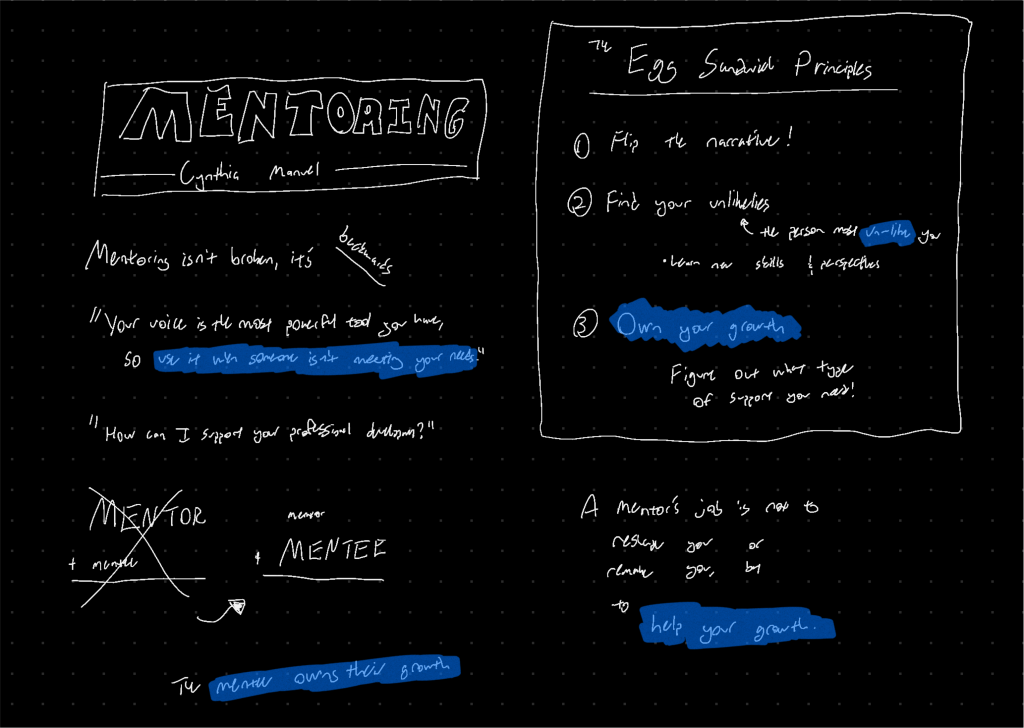 MENTORING
Cynthia Manuel
Mentoring isn't broken, it's backwards
"Your voice is the most powerful tool you have,
so use it when someone isn't meeting your needs"
"How can I support your professional development?"
MENTOR
+ mentee
mentor
+ MENTEE
The mentee owns their growth
The Egg Sandwich Principles
① Flip the narrative!
② Find your unlikelies
the person most un-like you
• Learn new skills & perspectives
③ Own your growth
Figure out what type
of support you need!
A mentor's job is not to
reshape you or
remake you, but
to help your growth.